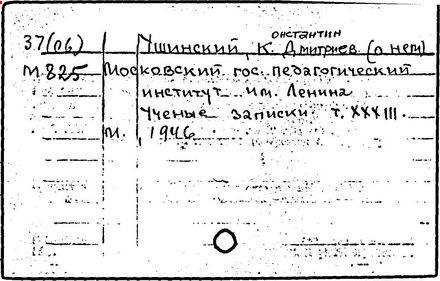 37(пб) Ушинский, Константин Дмитриев (о нем)
М825 Московский гос. педагогический
институт им. Ленина
Ученые записки т. XXXIII.
М. 1946